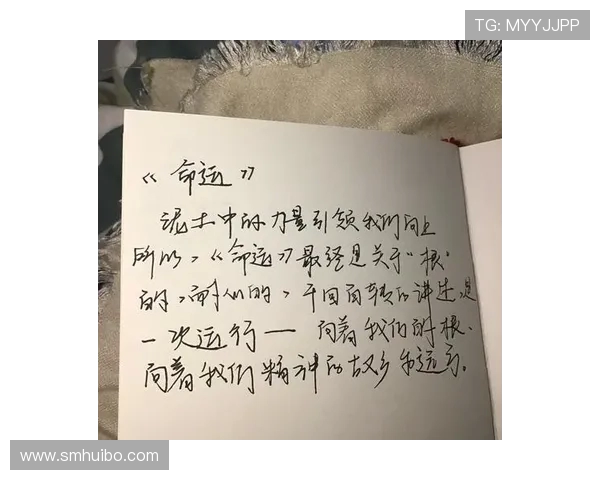 TG: MYYJJPP
《命运》
泥土中的力量引领我们向上
所以,《命运》最终是关于“根”
的,而我们的,千回百转的讲述,是
一次运行——向着我们的根、
向着我们精神的故乡和远方。
www.smhuibo.com